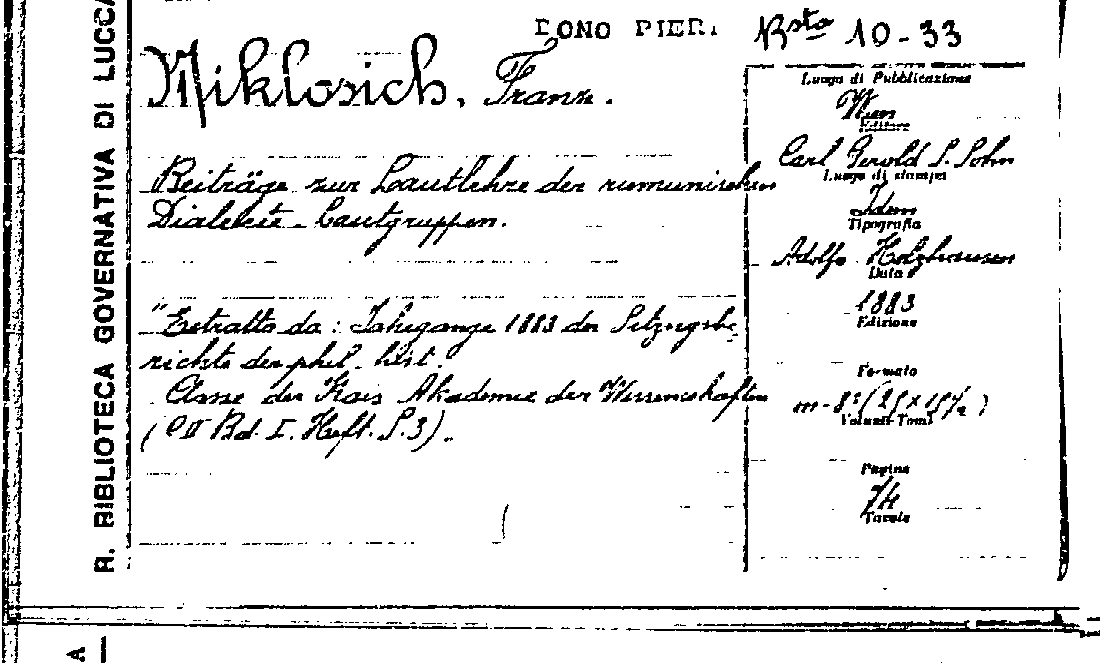 DONO PIERI
Bsta 10-33
R. BIBLIOTECA GOVERNATIVA DI LUCCA
Miklosich, Franz.
Beiträge zur Lautlehre der rumunischen
Dialekte - Lautgruppen.
"Estratto da: Jahrgange 1883 der Sitzngsbe-
richte der phil. hist.
Classe der Kais Akademie der Wissenschaften
(CII Bd. I. Heft. S. 3).
Luogo di Pubblicazione
Wien
Editore
Carl Gerold S. Sohn
Luogo di stampa
Idem
Tipografia
Adolfo Holzhausen
Data
1883
Edizione
Formato
m-8° (25 x 15½)
Volumi-Tomi
Pagine
74
Tavole
A